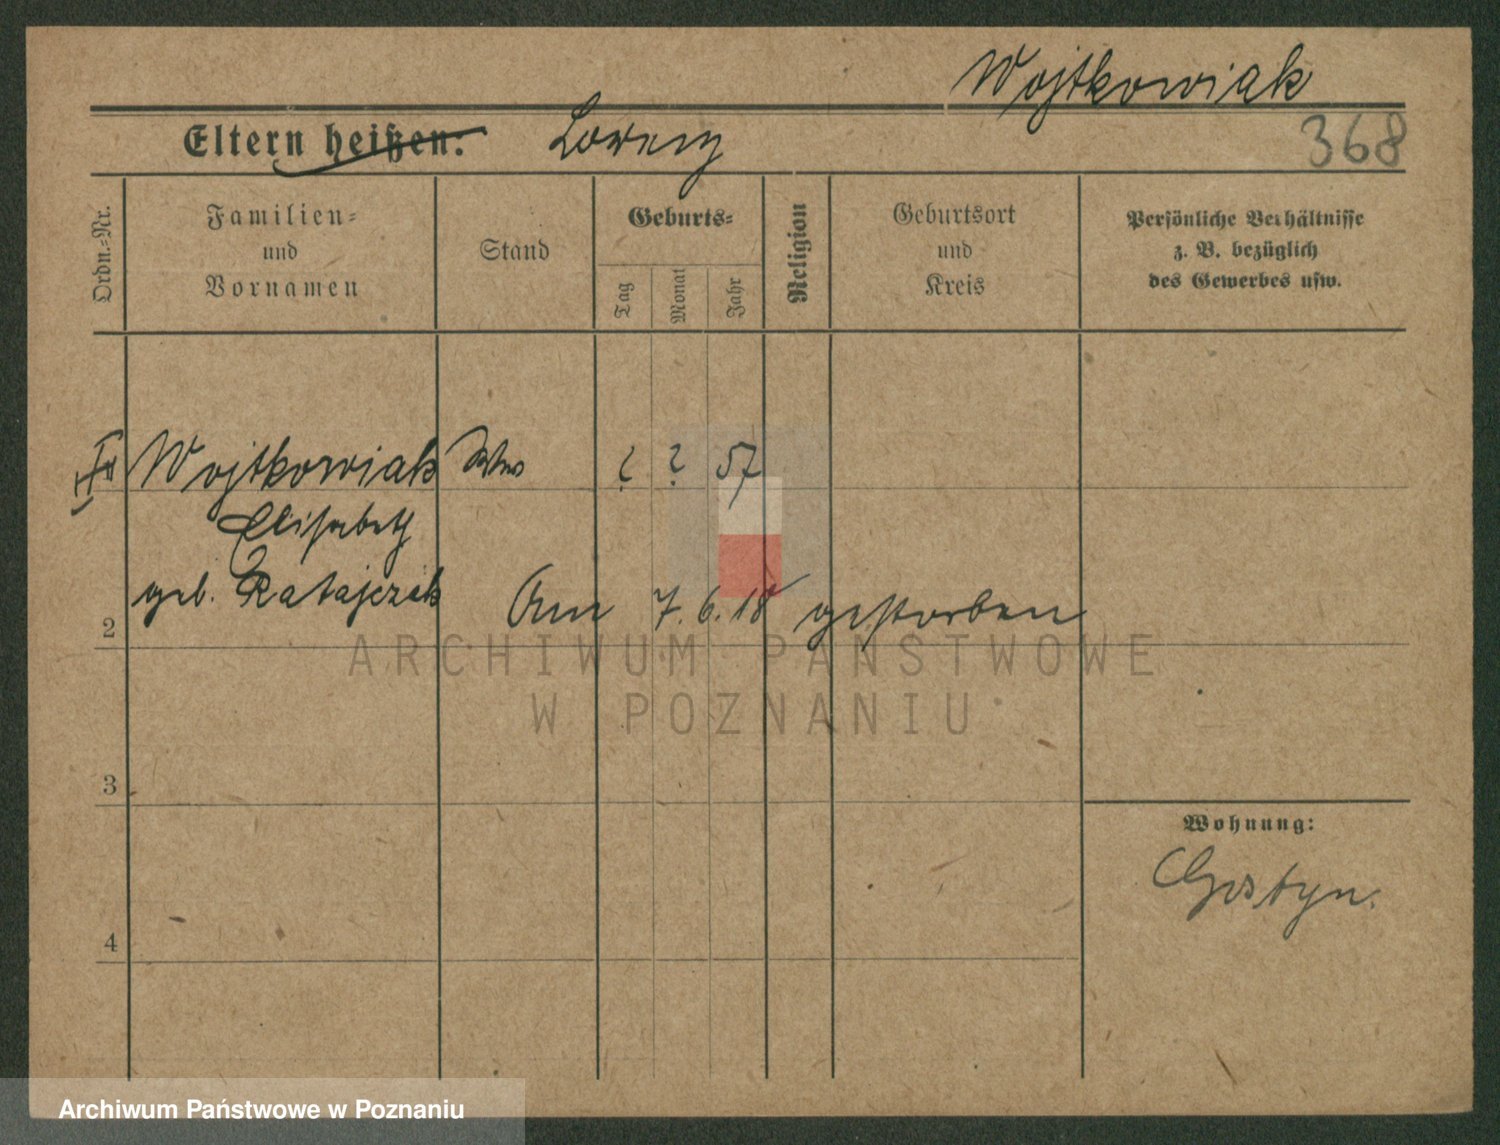 Wojtkowiak
Eltern heißen: Lorenz
368
Ordn.=Nr.
Familien=
und
Vornamen
Stand
Geburts=
Tag
Monat
Jahr
Religion
Geburtsort
und
Kreis
Persönliche Verhältnisse
z. B. bezüglich
des Gewerbes usw.
Wojtkowiak Ww ? ? 57
Elisabeth
geb. Ratajczak Am 7. 6. 18 gestorben
2
ARCHIWUM PAŃSTWOWE
W POZNANIU
3
Wohnung:
Gostyn.
4
Archiwum Państwowe w Poznaniu